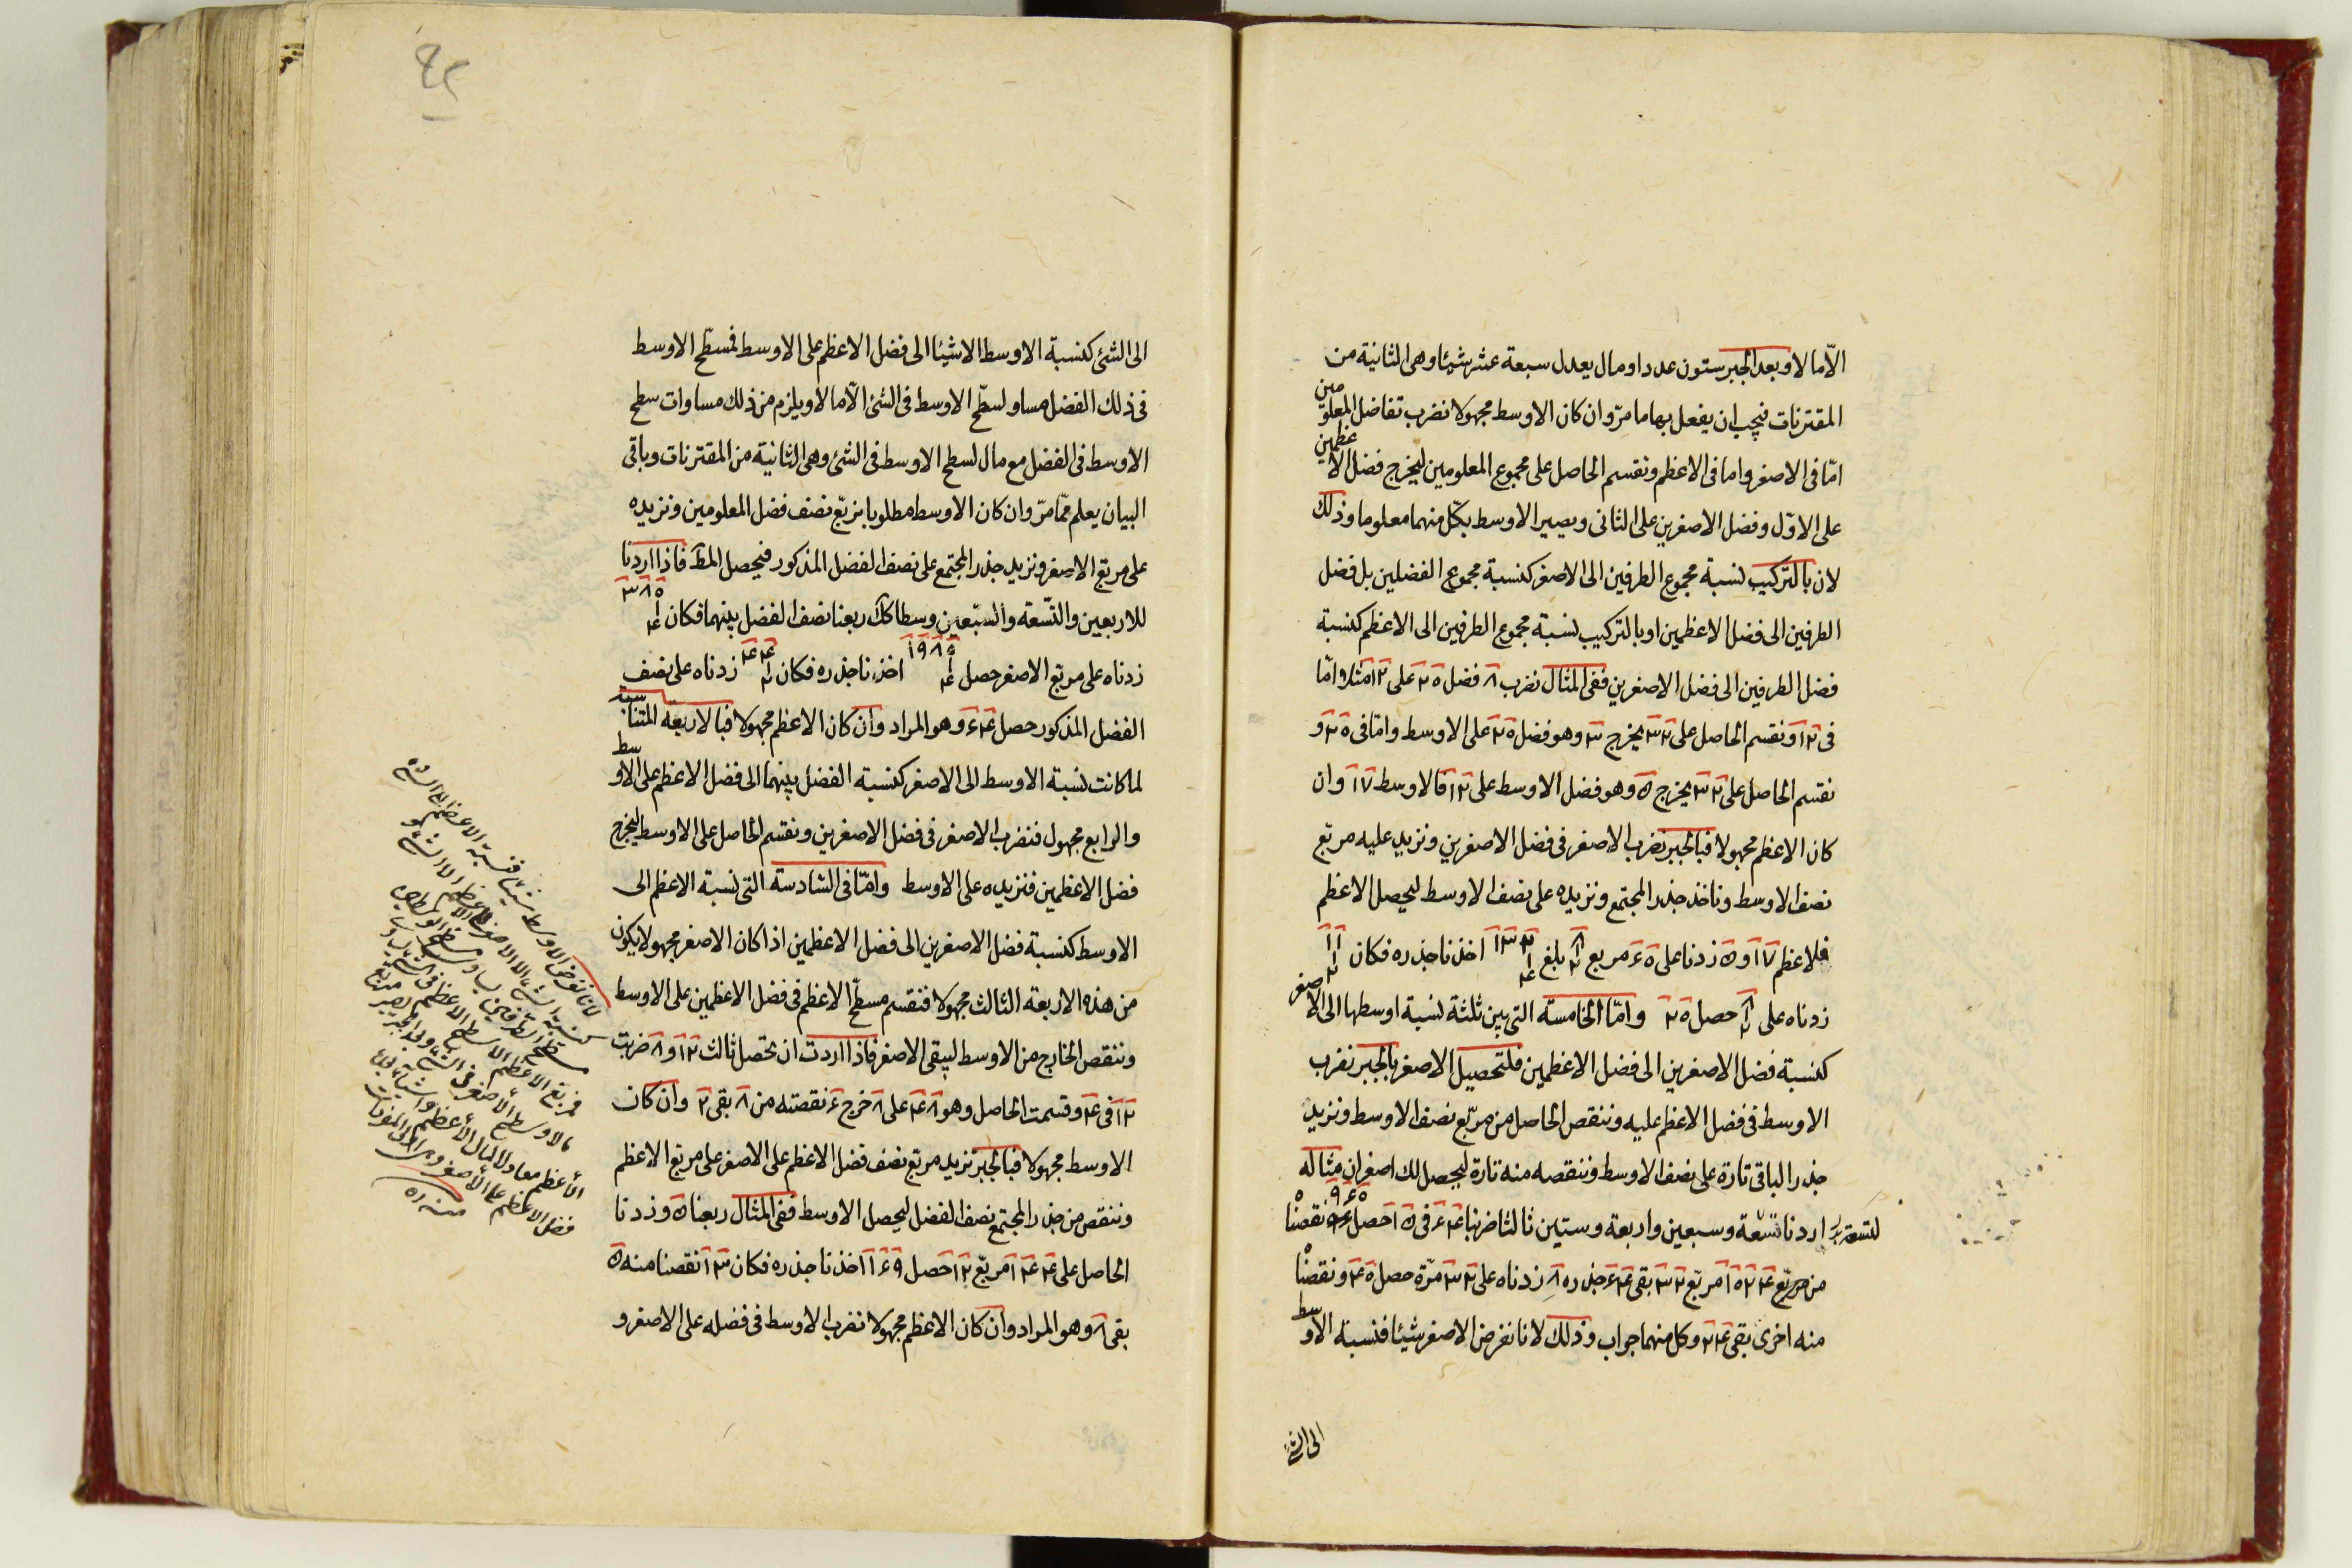 الّا مالا و بعد الجبر ستون عددا و مال يعدل سبعة عشر شيئا وهى الثانية من
المقترنات فيجب ان يفعل بها ما مرّ وان كان الاوسط مجهولا نضرب تفاضل المعلومين
امّا فى الاصغر واما فى الاعظم ونقسم الحاصل على مجموع المعلومين ليخرج فضل الاعظمين
على الاوّل وفضل الاصغرين على الثانى ويصير الاوسط بكلّ منهما معلوما وذلك
لان بالتركيب نسبة مجموع الطرفين الى الاصغر كنسبة مجموع الفضلين بل فضل
الطرفين الى فضل الاعظمين او بالتركيب نسبة مجموع الطرفين الى الاعظم كنسبة
فضل الطرفين الى فضل الاصغرين ففى المثال نضرب ٨ فضل ٢٥ على ١٢ مثلا وامّا
فى ١٢ ونقسم الحاصل على ٣٢ يخرج ٣ وهو فضل ٢٥ على الاوسط وامّا فى ٢٥ و
نقسم الحاصل على ٣٢ يخرج ٥ وهو فضل الاوسط على ١٢ فالاوسط ١٧ وان
كان الاعظم مجهولا فبالجبر نضرب الاصغر فى فضل الاصغرين ونزيد عليه مربّع
نصف الاوسط وناخذ جذر المجتمع ونزيده على نصف الاوسط ليحصل الاعظم
فلاعظم ١٧ و ٥ زدنا على ٦٥ مربع بلغ اخذنا جذره فكان
زدناه على حصل ٢٥ وامّا الخامسة التى بين ثلثة نسبة اوسطها الى الاصغر
كنسبة فضل الاصغرين الى فضل الاعظمين فلتحصيل الاصغر بالجبر نضرب
الاوسط فى فضل الاعظم عليه وننقص الحاصل من مربّع نصف الاوسط ونزيد
جذر الباقى تارة على نصف الاوسط وننقصه منه تارة ليحصل لك اصغران مثاله
اردنا تسعة وسبعين واربعة وستين ثالثا ضربنا ٦٤ فى ١٥ حصل ٩٦٠ نقصنا
من مربّع ١٥٢٤ مربّع ٣٢ بقى ٦٤ جذره ٨ زدناه على ٣٢ مرّة حصل ٤٥ ونقصنا
منه اخرى بقى ٢٤ وكل منهما جواب وذلك لانا نفرض الاصغر شيئا فنسبة الاوسط
الى الشئ
الى الشئ كنسبة الاوسط الا شيئا الى فضل الاعظم على الاوسط فمسطّح الاوسط
فى ذلك الفضل مساو لسطّح الاوسط فى الشئ الّا مالا ويلزم من ذلك مساوات سطح
الاوسط فى الفضل مع مال لسطح الاوسط فى الشئ وهى الثانية من المقترنات وباقى
البيان يعلم ممّا مرّ وان كان الاوسط مطلوبا نربّع نصف فضل المعلومين ونزيده
على مربّع الاصغر ونزيد جذر المجتمع على نصف الفضل المذكور فيحصل المط فاذا اردنا
للاربعين والتّسعة والسّبعين وسطا كك ربعنا نصف الفضل بينهما فكان
زدناه على مربّع الاصغر حصل اخذنا جذره فكان زدناه على نصف
الفضل المذكور حصل ٦٤ وهو المراد وان كان الاعظم مجهولا فبالاربعة المتناسبة
لما كانت نسبة الاوسط الى الاصغر كنسبة الفضل بينهما الى فضل الاعظم على الاوسط
والرابع مجهول فنضرب الاصغر فى فضل الاصغرين ونقسم الحاصل على الاوسط ليخرج
فضل الاعظمين فنزيده على الاوسط وامّا فى السّادسة التى نسبة الاعظم الى
الاوسط كنسبة فضل الاصغرين الى فضل الاعظمين اذا كان الاصغر مجهولا يكون
من هذه الاربعة الثالث مجهولا فنقسم مسطّح الاعظم فى فضل الاعظمين على الاوسط
وننقص الخارج من الاوسط ليبقى الاصغر فاذا اردت ان تحصل ثالث ١٢ و ٨ ضربت
١٢ فى ٤ وقسمت الحاصل وهو ٤٨ على ٨ خرج ٦ نقصته من ٨ بقى ٢ وان كان
الاوسط مجهولا فبالجبر نزيد مربّع نصف فضل الاعظم على الاصغر على مربّع الاعظم
وننقص من جذر المجتمع نصف الفضل ليحصل الاوسط ففى المثال ربعنا ٥ وزدنا
الحاصل على ١٤٤ مربّع ١٢ حصل ١٦٩ اخذنا جذره فكان ١٣ نقصنا منه ٥
بقى ٨ وهو المراد وان كان الاعظم مجهولا نضرب الاوسط فى فضله على الاصغر و
لانا نفرض الاوسط شيئا فنسبة الاعظم الى الشئ